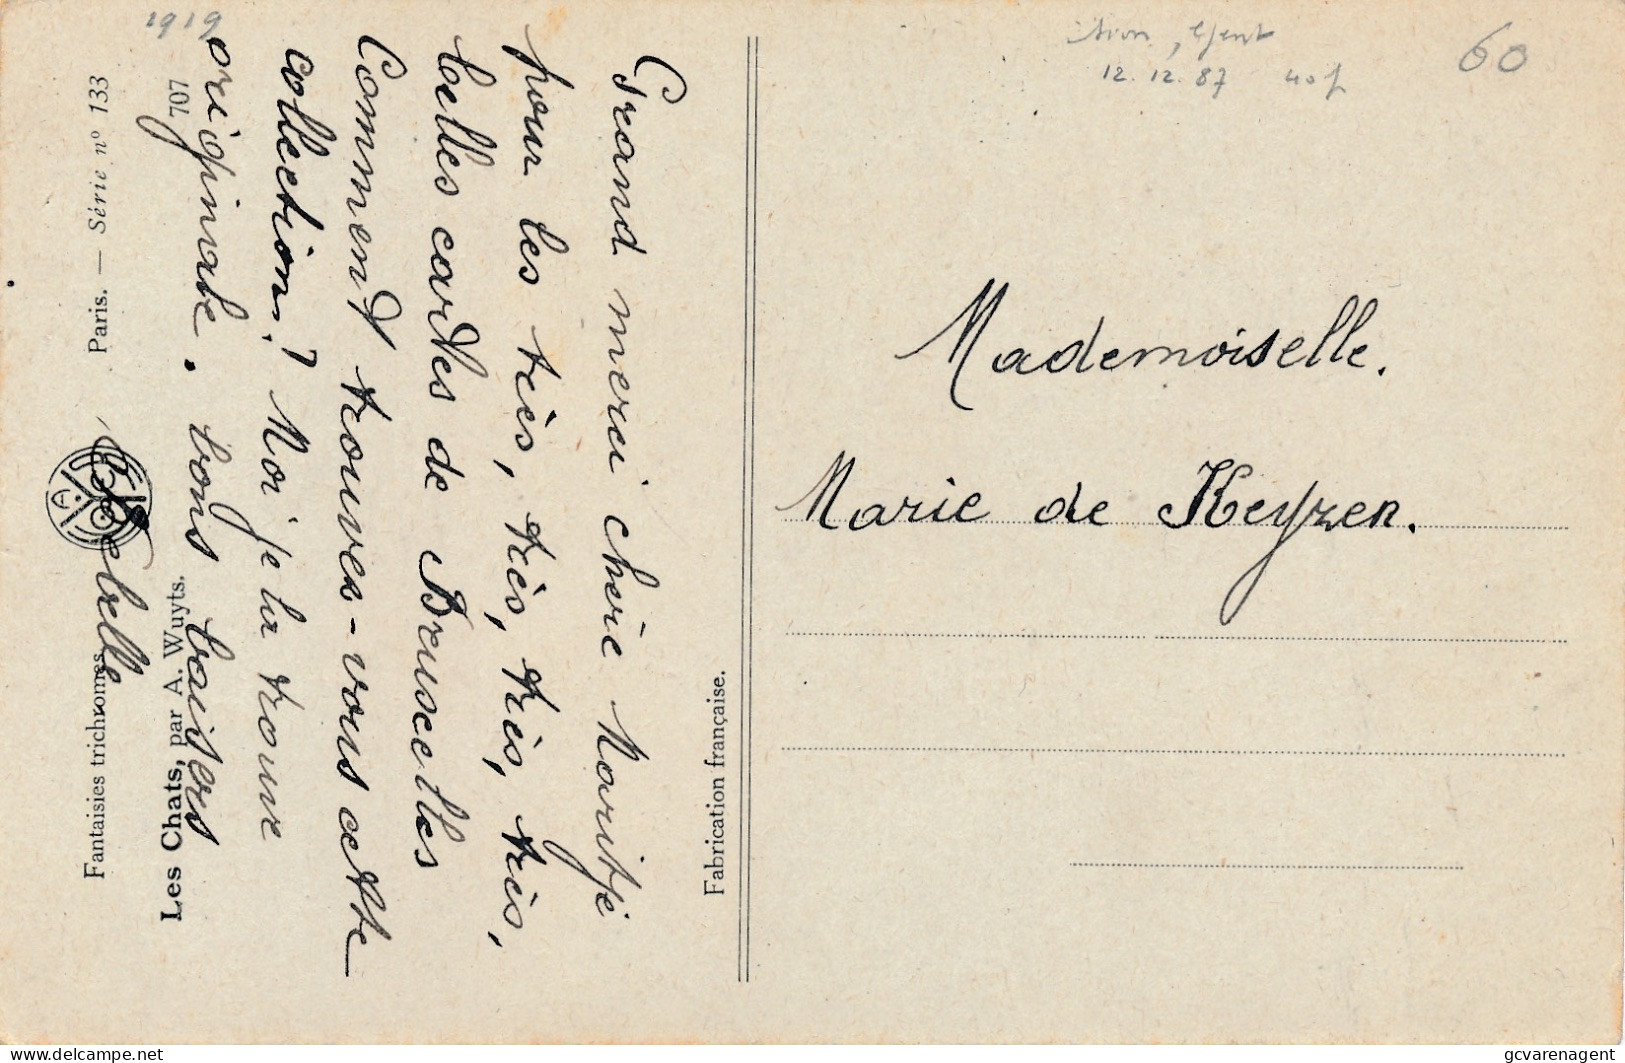 1919
, Gent
12.12.87 40f
60
Grand merci chère Maritje
pour les très, très, très, très,
belles cartes de Bruxelles
Comment trouvez-vous cette
collection? Moi je la trouve
originale. bons baisers
Fantaisies trichromes. Paris. — Série nº 133
Les Chats, par A. Wuyts. 707
Fabrication française.
Mademoiselle.
Marie de Keyzer.
gcvarenagent